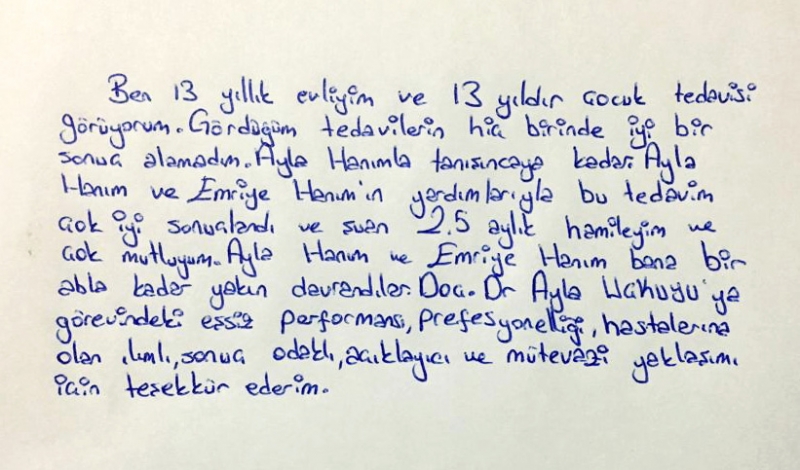 Ben 13 yıllık evliyim ve 13 yıldır çocuk tedavisi
görüyorum. Gördüğüm tedavilerin hiç birinde iyi bir
sonuç alamadım. Ayla Hanımla tanışıncaya kadar. Ayla
Hanım ve Emriye Hanım'ın yardımlarıyla bu tedavim
çok iyi sonuçlandı ve şuan 2.5 aylık hamileyim ve
çok mutluyum. Ayla Hanım ve Emriye Hanım bana bir
abla kadar yakın davrandılar. Doç. Dr Ayla Üçkuyu'ya
görevindeki eşsiz performansı, prefesyonelliği, hastalarına
olan ılımlı, sonuç odaklı, açıklayıcı ve mütevazi yaklaşımı
için teşekkür ederim.